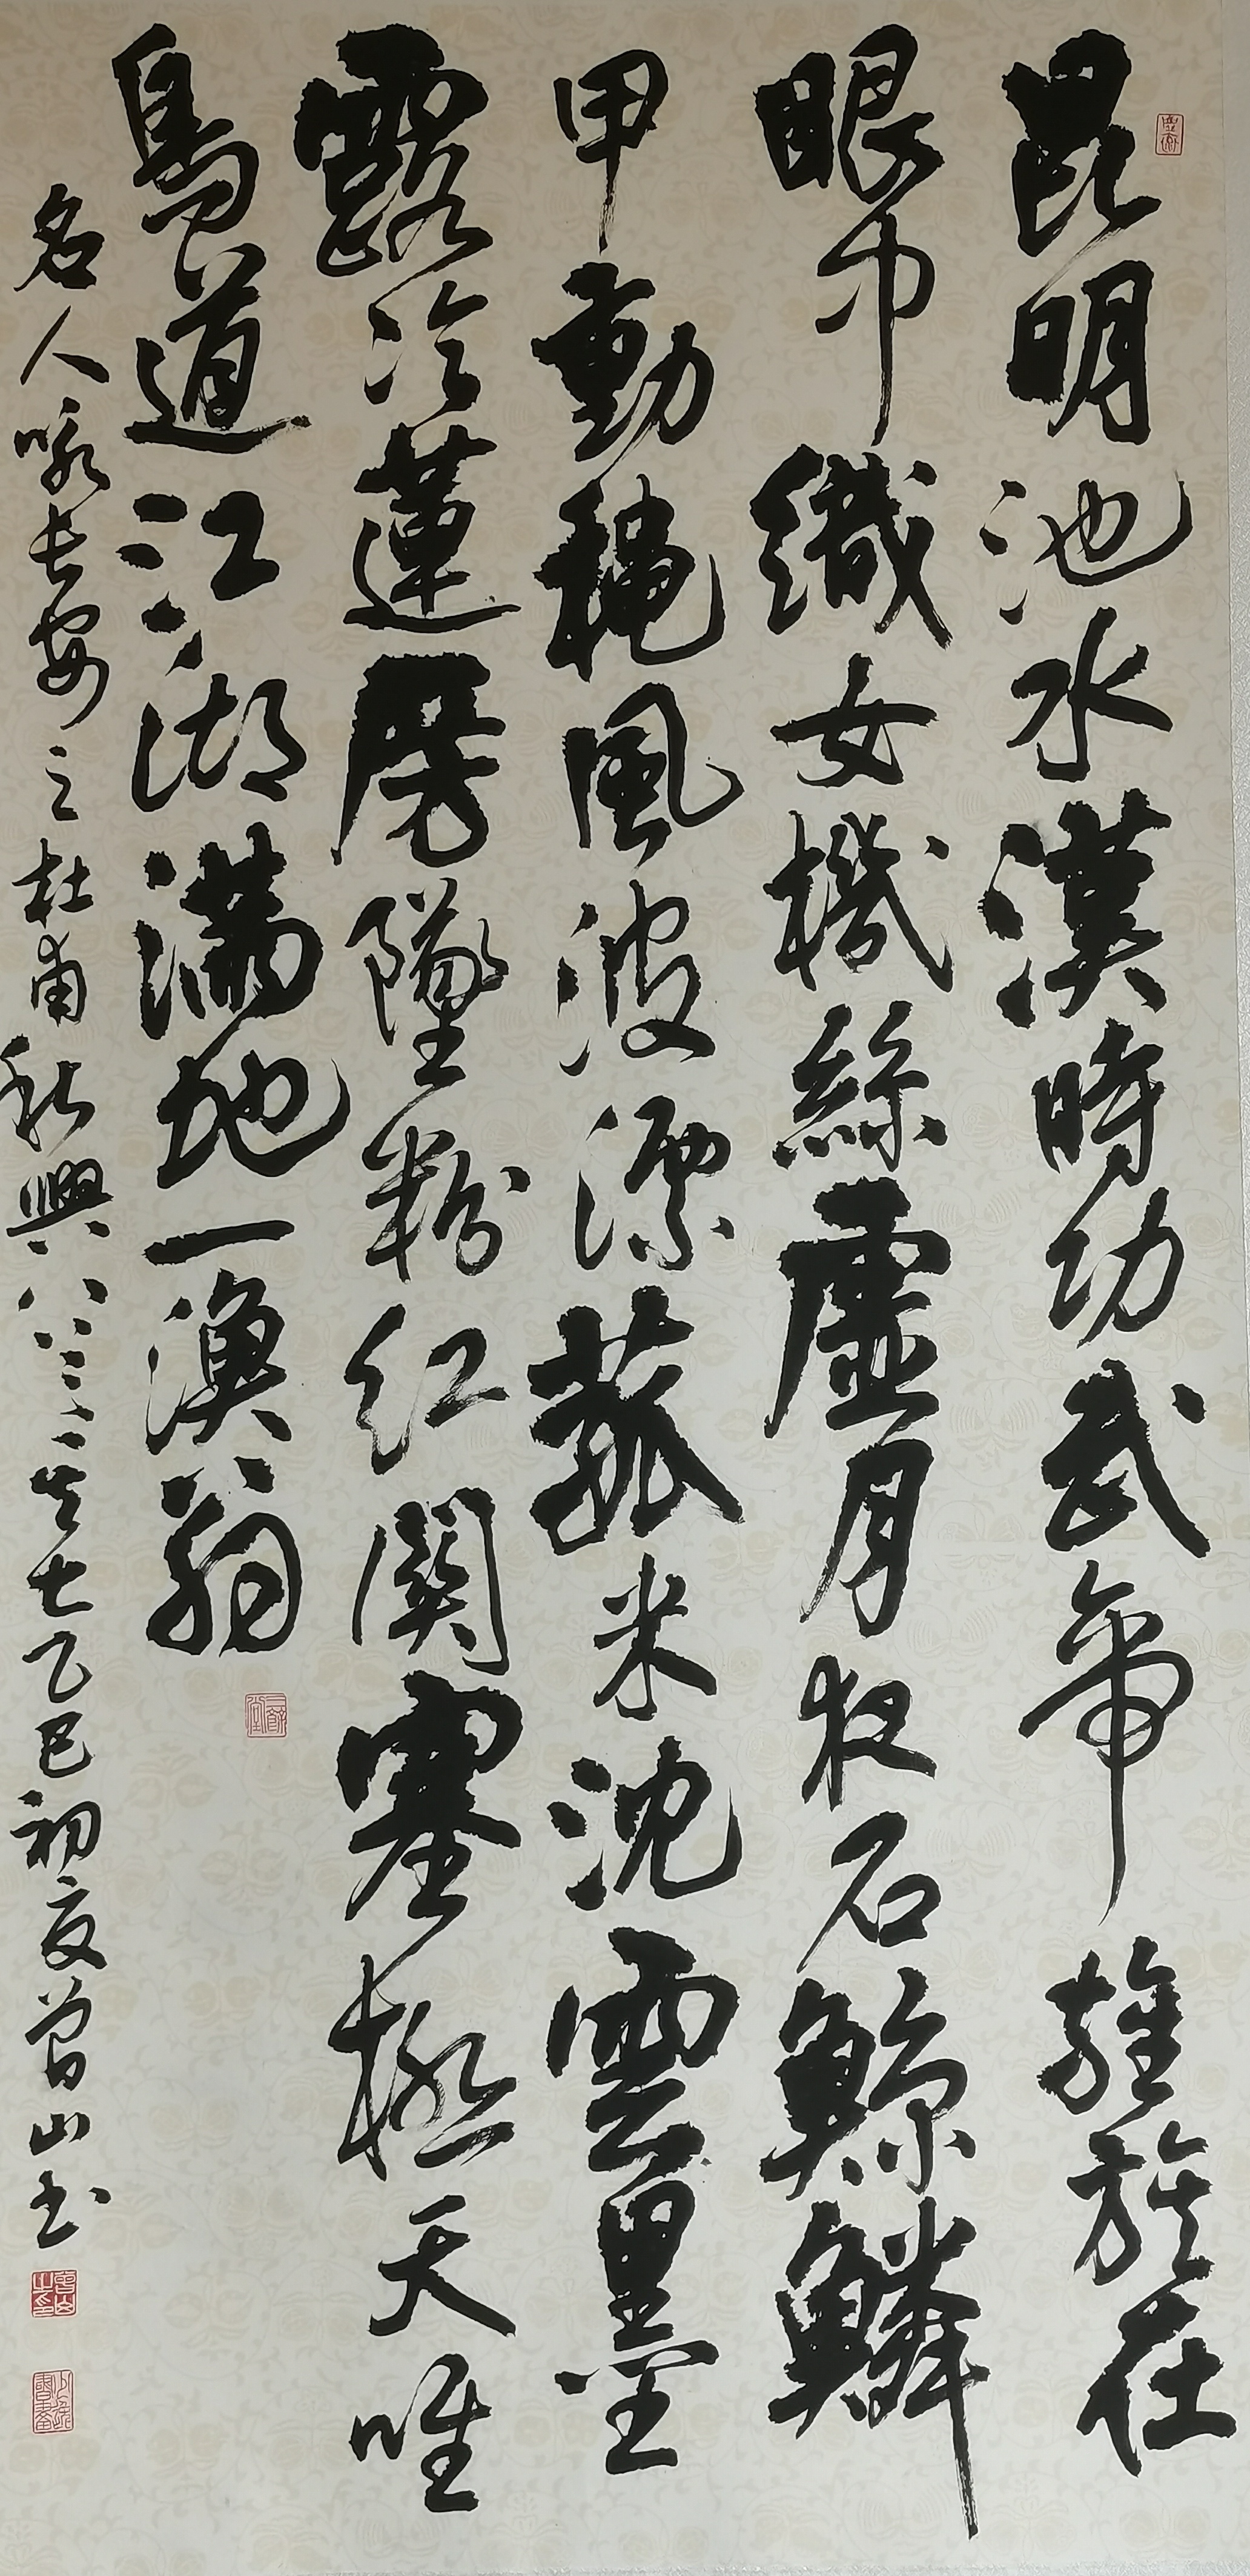 昆明池水漢時功武帝旌旗在
眼中織女機絲虛月夜石鯨鱗
甲動穐風波漂菰米沈雲墨
露冷蓮房墜粉紅關塞極天唯
鳥道江湖滿地一漁翁
名人咏長安之杜甫秋興八首之七乙巳初夏曾山书
曾山之印